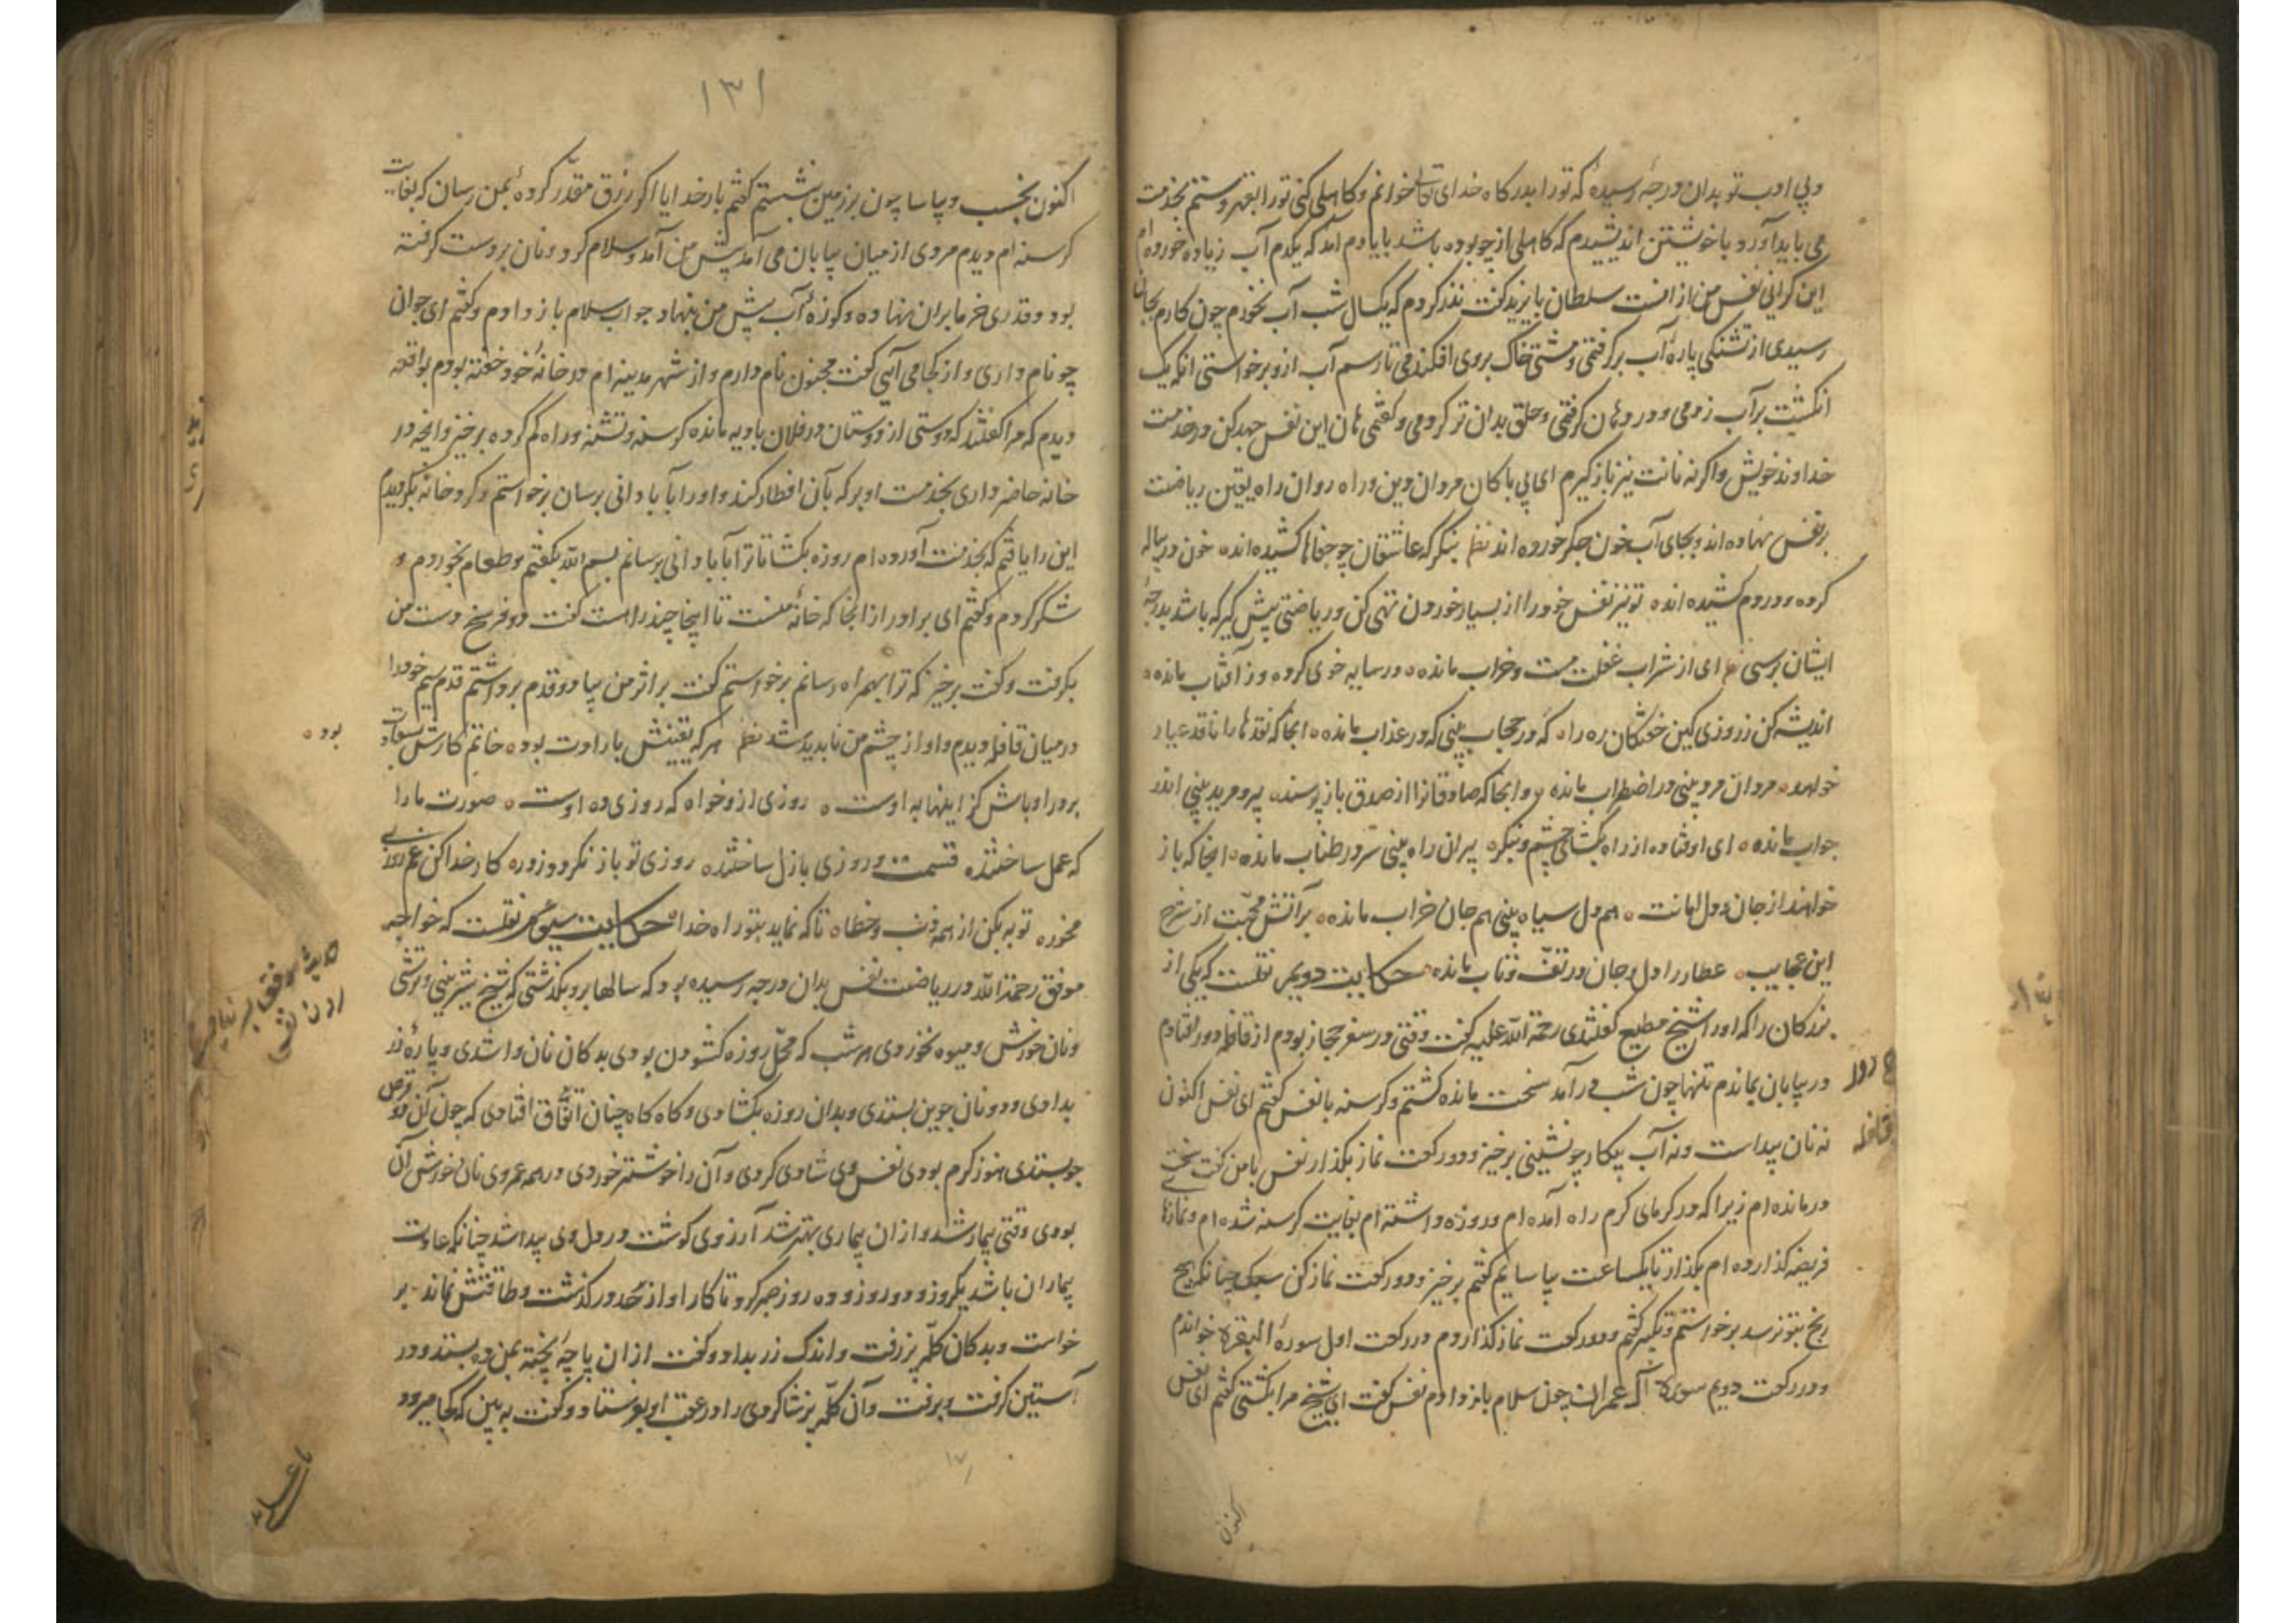 وبی ادب تو بدان درجهٔ رسیدهٔ که تو را بدرکاه خدای تعالی خوانم وکاهلی کنی تو را بقهر وستم بخدمت
می باید آورد با خویشتن اندیشیدم که کاهلی از چو بوده باشد بایادم آمد که یکدم آب زیاده خورده ام
این کرانی نفس من از انست سلطان بایزید کفت نذر کردم که یکسال شب آب نخورم چون کارم بجان
رسیدی از تشنکی پارهٔ آب برکرفتمی ومشتی خاک بروی افکندمی تا رسم آب ازو برخواستی انکه یک
انکشت بر آب زدمی ودر دهان کرفتمی وحلق بدان تر کردمی وکفتمی هان این نفس جهد کن در خدمت
خداوند خویش واکرنه نانت نیز باز کیرم ای بی باکان مردان دین وراه روان راه یقین ریاضت
بر نفس نهاده اند وبجای آب خون جکر خورده اند نظم بنکر که عاشقان چو جفاها کشیده اند خون در پیاله
کرده ودردم کشیده اند تو نیز نفس خود را از بسیار خوردن تهی کن وریاضتی پیش کیر که باشد بدرجهٔ
ایشان برسی نظم ای از شراب غفلت مست وخراب مانده در سایه خوی کرده وز آفتاب مانده
اندیشه کن ز روزی کین خفتکان ره را که در حجاب بینی که در عذاب مانده انجا که نقدها را ناقد عیار
خواهد مردان مرد بینی در اضطراب مانده وانجا که صادقانرا از صدق باز پرسند پیر ومرید بینی اندر
جواب مانده ای اوفتاده از راه بکشای چشم وبنکر پیران راه بینی سر در طناب مانده انجا که باز
خواهند از جان ودل امانت هم دل سیاه بینی هم جان خراب مانده بر آتش محبت از شرح
این عجایب عطار را دل وجان در تف وتاب مانده حکایت دویم نقلست که یکی از
بزرکان را که او را شیخ مطیع کفتندی رحمة الله علیه کفت وقتی در سفر حجاز بودم از قافله دور افتادم
در بیابان بماندم تنها چون شب در آمد سخت مانده کشتم وکرسنه با نفس کفتم ای نفس اکنون
نه نان پیداست ونه آب بیکار چو نشینی برخیز ودو رکعت نماز بکذار نفس با من کفت سخت
درمانده ام زیرا که در کرمای کرم راه آمده ام وروزه داشته ام بغایت کرسنه شده ام ونمازهای
فریضه کذارده ام بکذار تا یکساعت بیاسایم کفتم برخیز ودو رکعت نماز کن سبک چنانکه هیچ
رنج بتو نرسد برخواستم وتکبیر کفتم ودو رکعت نماز کذاردم در رکعت اول سورة البقره خواندم
ودر رکعت دویم سورة آل عمران چون سلام باز دادم نفس کفت ای شیخ مرا بکشتی کفتم ای نفس
اکنون
۱۳۱
اکنون بخسب وبیاسا چون بر زمین نشستم کفتم بار خدایا اکر رزق مقدّر کردهٔ بمن رسان که بغایت
کرسنه ام دیدم مردی از میان بیابان می آمد پیش من آمد وسلام کرد ونان بر دست کرفته
بود وقدری خرما بران نهاده وکوزهٔ آب پیش من بنهاد جواب سلام باز دادم وکفتم ای جوان
چو نام داری واز کجا می آیی کفت مجنون نام دارم واز شهر مدینه ام در خانهٔ خود خفته بودم بواقعه
دیدم که مرا کفتند که دوستی از دوستان در فلان بادیه مانده کرسنه وتشنه وراه کم کرده برخیز وانچه در
خانه حاضر داری بخدمت او بر که بآن افطار کند واو را بآبادانی برسان برخواستم وکرد خانه بکردیدم
این را یافتم که بخدمت آورده ام روزه بکشا تا ترا بآبادانی برسانم بسم الله بکفتم وطعام بخوردم و
شکر کردم وکفتم ای برادر از انجا که خانهٔ تست تا اینجا چند راهست کفت دو فرسخ دست من
بکرفت وکفت برخیز که ترا بهمراه رسانم برخواستم کفت بر اثر من بیا دو قدم برداشتم قدم سیم خود را
در میان قافله دیدم واو از چشم من ناپدید شد نظم هر که یقینش بارادت بود خاتم کارش بسعادت
بود
بر در او باش کز اینها به اوست روزی ازو خواه که روزی ده اوست صورت ما را
که عمل ساختند قسمت وروزی بازل ساختند روزی تو باز نکردد ز در کار خدا کن غم روزی
مخور توبه بکن از همه ذنب وخطا تا که نماید بتو راه خدا حکایت سیوم نقلست که خواجه
موفق رحمة الله در ریاضت نفس بدان درجه رسیده بود که سالها برو بکذشتی که هیچ شیرینی وترشی
ونان خورش ومیوه نخوردی هر شب که محل روزه کشودن بودی بدکان نان وا شدی وپارهٔ زر
بدادی ودو نان جوین بستدی وبدان روزه بکشادی وکاه کاه چنان اتفاق افتادی که چون آن دو قرص
جو بستدی هنوز کرم بودی نفس وی شادی کردی وآن را خوشتر خوردی در همه عمر وی نان خورش آن
بودی وقتی بیمار شد واز ان بیماری بهتر شد آرزوی کوشت در دل وی پیدا شد چنانکه عادت
بیماران باشد یکروز ودو روز وده روز صبر کرد تا کار او از حد در کذشت وطاقتش نماند بر
خواست وبدکان کلّه پز رفت واندک زر بداد وکفت ازان پاچهٔ پخته بمن ده بستد ودر
آستین کرفت وبرفت وآن کلّه پز شاکردی را در عقب او بفرستاد وکفت به بین که کجا میرود
۱۷